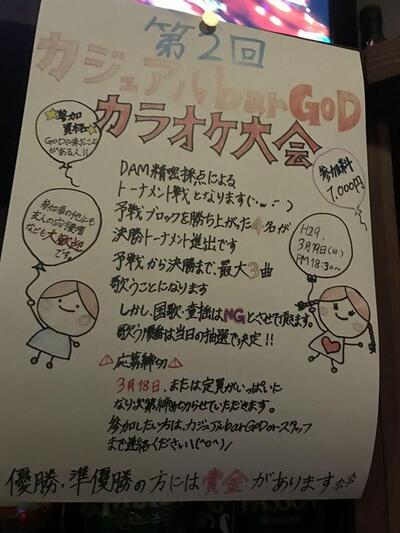 第2回
カジュアルbar GoD
カラオケ大会
参加
資格
GoDに来たこと
がある人!!
参加料
7,000円
DAM精密採点による
トーナメント戦となります(・⌣・)
予戦ブロックを勝ち上がった4名が
決勝トーナメント進出です
予戦から決勝まで、最大3曲
歌うことになります
しかし、国歌・童揺はNGとさせて頂ます。
歌う順番は当日の抽選で決定!!
参加者の他にも
友人の応援者
なども大歓迎
です。
H29.
3月19日(日)
PM18:30〜
⚠応募締切⚠
3月18日、または定員がいっぱいに
なり次第締め切らせていただきます。
参加したい方は、カジュアルbar GoD or スタッフ
まで連絡ください\(^o^)/
優勝、準優勝の方には賞金があります$$